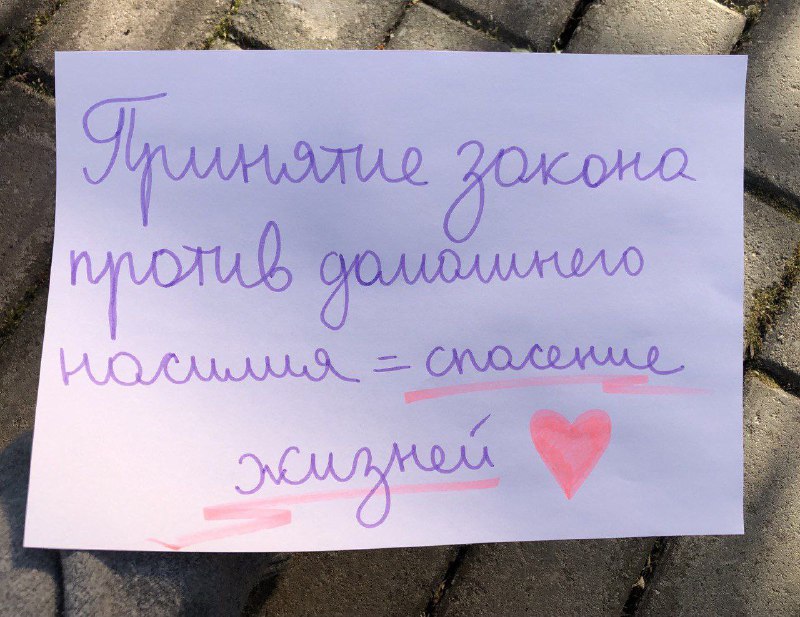 Принятие закона
против домашнего
насилия = спасение
жизней